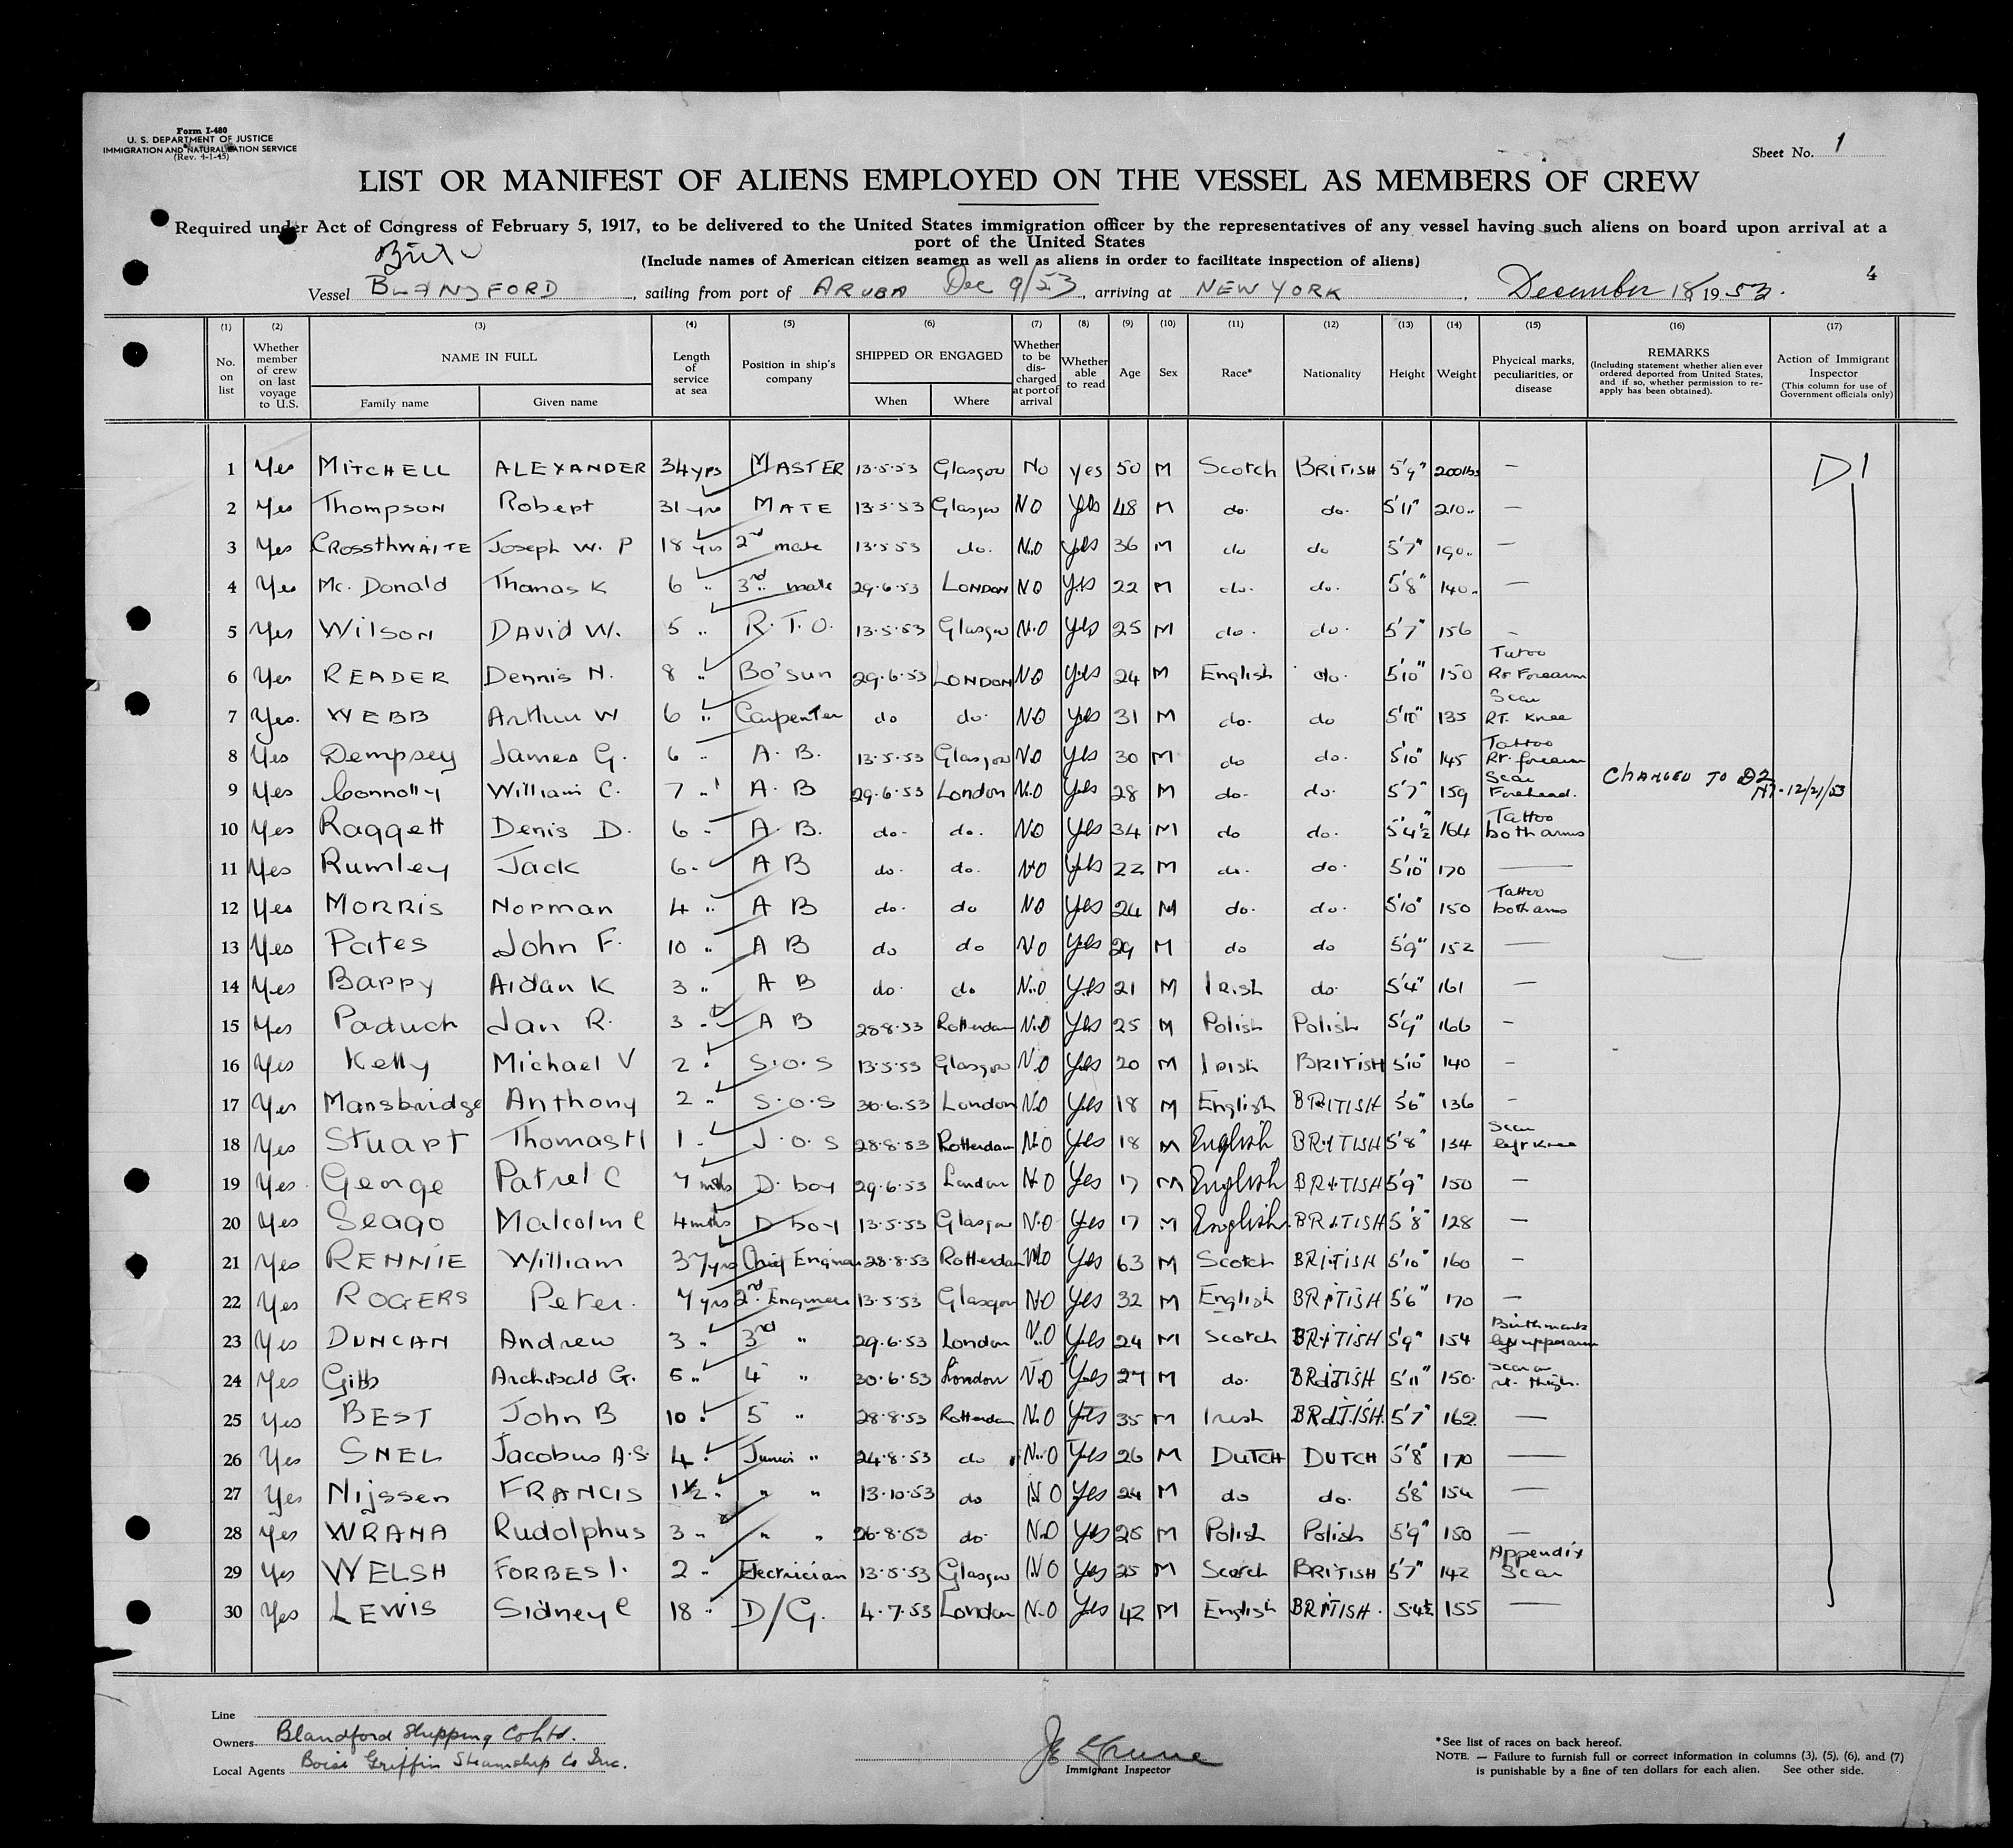 Form I-480
U. S. DEPARTMENT OF JUSTICE
IMMIGRATION AND NATURALIZATION SERVICE
(Rev. 4-1-45)
Sheet No. 1
LIST OR MANIFEST OF ALIENS EMPLOYED ON THE VESSEL AS MEMBERS OF CREW
Required under Act of Congress of February 5, 1917, to be delivered to the United States immigration officer by the representatives of any vessel having such aliens on board upon arrival at a
port of the United States
(Include names of American citizen seamen as well as aliens in order to facilitate inspection of aliens)
4
Vessel BLANDFORD, sailing from port of ARUBA Dec 9/53, arriving at NEW YORK, December 18, 1953.
(1) (2) (3) (4) (5) (6) (7) (8) (9) (10) (11) (12) (13) (14) (15) (16) (17)
No. on list Whether member of crew on last voyage to U.S. NAME IN FULL Family name Given name Length of service at sea Position in ship's company SHIPPED OR ENGAGED When Where Whether to be discharged at port of arrival Whether able to read Age Sex Race* Nationality Height Weight Physical marks, peculiarities, or disease REMARKS (Including statement whether alien ever ordered deported from United States, and if so, whether permission to re-apply has been obtained). Action of Immigrant Inspector (This column for use of Government officials only)
1 Yes MITCHELL ALEXANDER 34 yrs MASTER 13·5·53 Glasgow No yes 50 M Scotch BRITISH 5'9" 200lbs — D1
2 Yes Thompson Robert 31 yrs MATE 13·5·53 Glasgow NO Yes 48 M do. do. 5'11" 210 " —
3 Yes CROSSTHWAITE Joseph W. P 18 yrs 2nd mate 13·5·53 do. NO yes 36 M do do 5'7" 190 " —
4 Yes Mc. Donald Thomas K 6 " 3rd mate 29·6·53 LONDON NO Yes 22 M do. do. 5'8" 140 " —
5 Yes Wilson DAVID W. 5 " R.T.O. 13·5·53 Glasgow NO Yes 25 M do. do. 5'7" 156 —
6 Yes READER Dennis N. 8 " Bo'sun 29·6·53 LONDON NO Yes 24 M English do. 5'10" 150 Tatoo Rt Forearm
7 Yes. WEBB Arthur W 6 " Carpenter do do. NO Yes 31 M do. do 5'10" 135 Scar RT. Knee
8 Yes Dempsey James G. 6 " A. B. 13·5·53 Glasgow NO Yes 30 M do do. 5'10" 145 Tattoo Rt. forearm
9 Yes Connolly William C. 7 " A. B 29·6·53 London NO Yes 28 M do. do. 5'7" 159 Scar Forehead. CHANGED TO D2 12/21/53
10 Yes Raggett Denis D. 6 " A. B. do. do. NO Yes 34 M do do. 5'4½" 164 Tattoo both arms
11 Yes Rumley Jack 6 " A B do. do. NO Yes 22 M do. do. 5'10" 170 —
12 Yes MORRIS Norman 4 " A B do. do NO Yes 24 M do. do. 5'10" 150 Tattoo both arms
13 Yes Pates John F. 10 " A B do do NO Yes 29 M do do 5'9" 152 —
14 Yes Barry Aidan K 3 " A B do. do NO Yes 21 M Irish do. 5'4" 161 —
15 Yes Paduch Jan R. 3 " A B 28·8·53 Rotterdam NO Yes 25 M Polish Polish 5'9" 166 —
16 Yes Kelly Michael V 2 " S.O.S 13·5·53 Glasgow NO Yes 20 M Irish BRITISH 5'10" 140 —
17 Yes Mansbridge Anthony 2 " S.O.S 30·6·53 London NO Yes 18 M English BRITISH 5'6" 136 —
18 Yes Stuart Thomas H 1 " J.O.S 28·8·53 Rotterdam NO Yes 18 M English BRITISH 5'8" 134 Scar left Knee
19 Yes. George C 7 mths D. boy 29·6·53 London NO Yes 17 M English BRITISH 5'9" 150 —
20 Yes Seago Malcolm C 4 mths D boy 13·5·53 Glasgow NO Yes 17 M English. BRITISH 5'8" 128 —
21 Yes RENNIE William 37 yrs Chief Engineer 28·8·53 Rotterdam NO Yes 63 M Scotch BRITISH 5'10" 160 —
22 Yes ROGERS Peter. 7 yrs 2nd. Engineer 13·5·53 Glasgow NO Yes 32 M English BRITISH 5'6" 170 —
23 Yes DUNCAN Andrew 3 " 3rd " 29·6·53 London NO Yes 24 M Scotch BRITISH 5'9" 154 Birthmark left upper arm
24 Yes Gibb Archibald G. 5 " 4 " 30·6·53 London NO Yes 27 M do. BRITISH 5'11" 150. Scar on rt. thigh.
25 Yes BEST John B 10 " 5 " 28·8·53 Rotterdam NO Yes 35 M Irish BRITISH. 5'7" 162 —
26 Yes SNEL Jacobus A.S. 4 " Junior " 24·8·53 do NO Yes 26 M DUTCH DUTCH 5'8" 170 —
27 Yes Nijssen FRANCIS 1½ " " " 13·10·53 do NO Yes 24 M do do. 5'8" 154 —
28 Yes WRANA Rudolphus 3 " " " 26·8·53 do. NO Yes 25 M Polish Polish 5'9" 150 —
29 Yes WELSH FORBES I. 2 " Electrician 13·5·53 Glasgow NO Yes 25 M Scotch BRITISH 5'7" 142 Appendix Scar
30 Yes LEWIS Sidney C 18 " D/G. 4·7·53 London NO Yes 42 M English BRITISH. 5'4½ 155 —
Line
Owners Blandford Shipping Co Ltd.
Local Agents Boise Griffin Steamship Co Inc.
Immigrant Inspector
*See list of races on back hereof.
NOTE. — Failure to furnish full or correct information in columns (3), (5), (6), and (7)
is punishable by a fine of ten dollars for each alien. See other side.